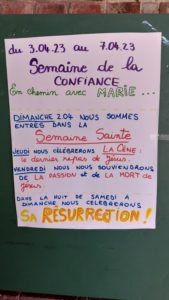 du 3.04.23 au 7.04.23
Semaine de la
CONFIANCE
En chemin avec MARIE...
DIMANCHE 2.04 NOUS SOMMES
ENTRÉS DANS LA
Semaine Sainte
JEUDI NOUS CÉLÈBRERONS LA CÈNE :
le dernier repas de Jésus.
VENDREDI NOUS NOUS SOUVIENDRONS
DE LA PASSION et de LA MORT de
Jésus.
DANS LA NUIT DE SAMEDI À
DIMANCHE NOUS CÉLÈBRERONS
SA RÉSURRECTION !